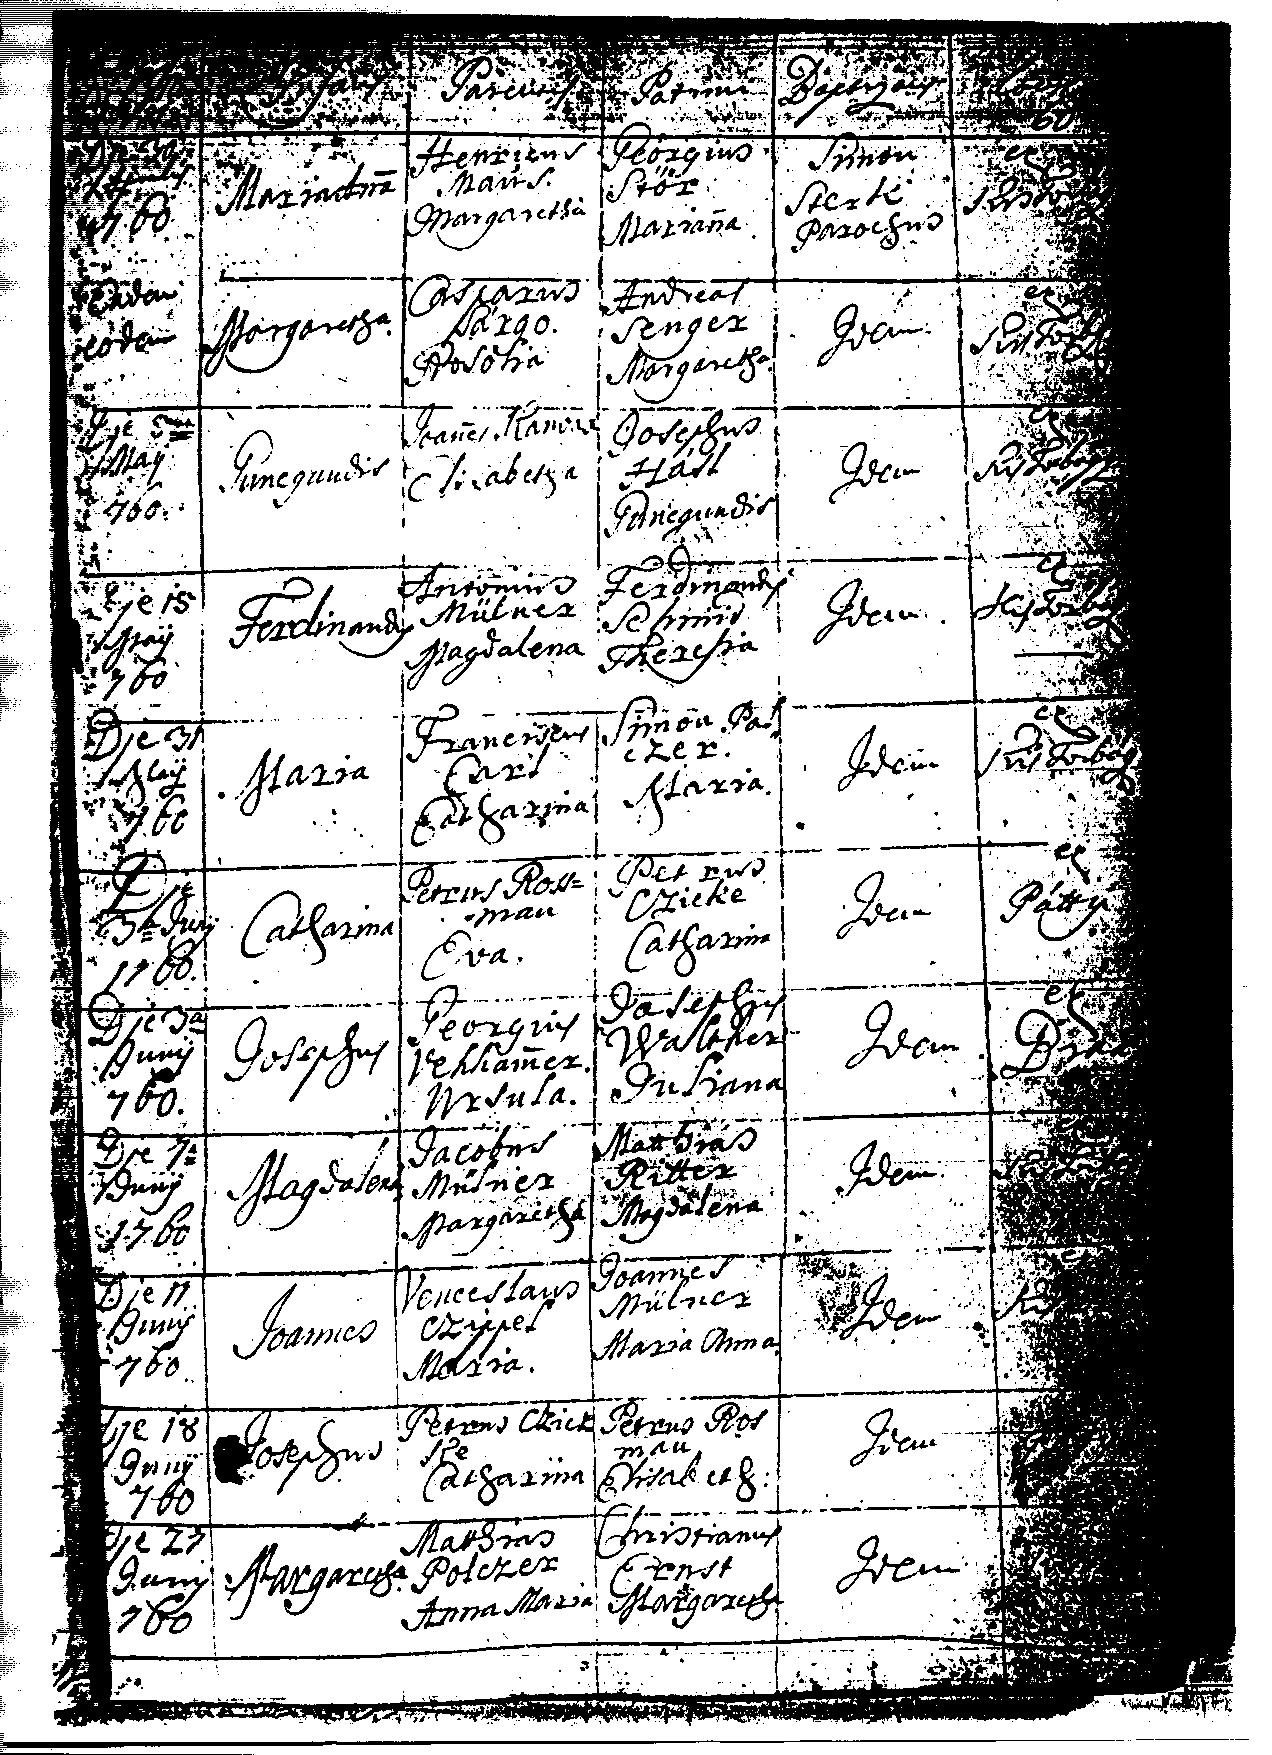 Infans Parentes Patrini Baptizans
Die 30
Aprilis
1760
Mariaña
Henricus
Maus.
Margaretha
Georgius
Stör
Mariaña
Simon
Sterk
Parochus
ex
Eadem
eodem
Margaretha.
Casparus
Sargo.
Rosolia
Andreas
Senger
Margaretha.
Idem
ex
Die 3
May
760.
Cunegundis
Joañes
Elisabetha
Josephus
Cunegundis
Idem
ex
Die 15
May
760
Ferdinandus
Antonius
Mülner
Magdalena
Ferdinandus
Schmid
Theresia
Idem.
ex
Die 31
May
760
Maria
Franciscus
Carl
Catharina
Simon Pol
czer.
Maria.
Idem
ex
Die
3 Junÿ
1760.
Catharina
Petrus Ross=
man
Eva.
Petrus
Czicke
Catharina
Idem
ex
Páty
Die 3a
Junÿ
760.
Josephus
Georgius
Vehhamer.
Ursula.
Josephus
Walther
Juliana
Idem
ex
Die 7a
Junÿ
1760
Magdalena
Jacobus
Mülner
Margaretha
Matthias
Ritter
Magdalena
Idem
Die 11
Junÿ
760.
Joannes
Venceslaus
Czippel
Maria.
Joannes
Mülner
Maria Anna
Idem
Die 18
Junÿ
760
Josephus
Petrus Czick
ke
Catharina
Petrus Ros
man
Elisabeth.
Idem
Die 27
Junÿ
760
Margaretha.
Matthias
Polczer
Anna Maria
Christianus
Ernst
Margaretha
Idem